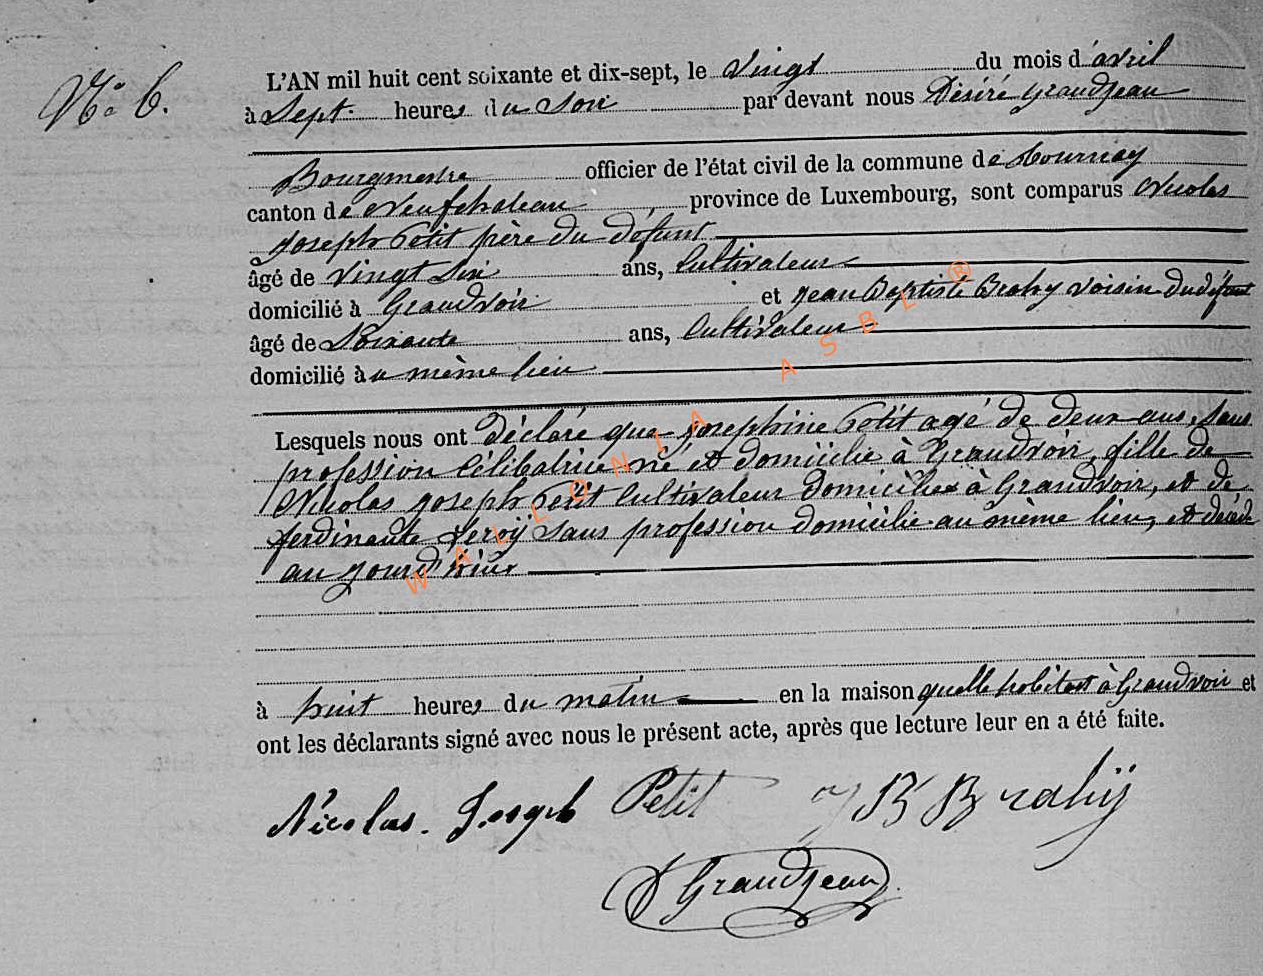 N° 6.
L'AN mil huit cent soixante et dix-sept, le vingt du mois d'avril
à Sept heures du Soir par devant nous Désiré Grandjean
Bourgmestre officier de l'état civil de la commune de Tournay
canton de Neufchateau, province de Luxembourg, sont comparus Nicolas
Joseph Petit père du défunt
âgé de vingt Six ans, Cultivateur
domicilié à Grandvoir et Jean Baptiste Brahy voisin du défunt
âgé de Soixante ans, Cultivateur
domicilié au même lieu
Lesquels nous ont déclaré que Josephine Petit agé de deux ans, sans
profession Célibatrice né et domicilie à Grandvoir, fille de
Nicolas Joseph Petit Cultivateur domicilié à Grandvoir, et de
ferdinante Leroÿ sans profession domicilie au même lieu, et décédé
au jourd'hiux
à huit heures du matin en la maison quelle habitait à Grandvoir et
ont les déclarants signé avec nous le présent acte, après que lecture leur en a été faite.
Nicolas. Joseph Petit J B Brahÿ
D Grandjean
WALLONIA ASBL ®